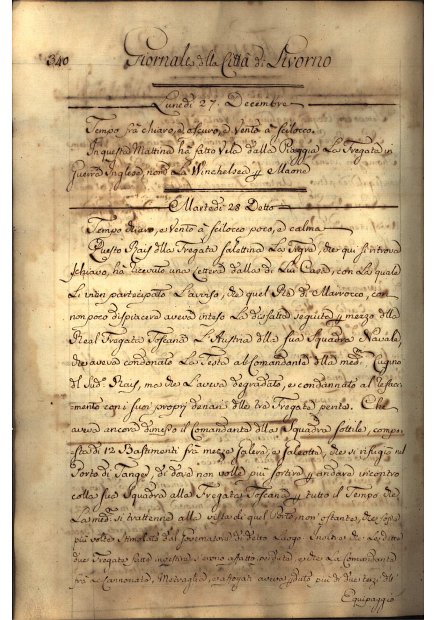 340 Giornale della Città di Livorno
Lunedì 27. Decembre
Tempo frà chiaro, e oscuro, e vento à scilocco.
In questa Mattina ha fatto Vela dalla Piaggia La Fregata in
Guerra Inglese, nom. La Winchelsea p Maone
Martedì 28 Detto
Tempo chiaro, e Vento à scilocco poco, e calma
Questo Rais della Fregata Salettina La che qui si ritrova
schiavo, ha ricevuto una Lettera dalla di Lui Casa, con La quale
Li vien partecipato L'avviso, che quel Rè di Marrocco, con
non poco dispiacere aveva inteso La disfatta seguita p mezzo della
Real Fregata Toscana L'Austria della sua Squadra Navale
che aveva condonato La Testa al Comandante della med. Cugino
del Sud. Rais, ma che L'aveva degradato, e condannato al
mento con i suoi proprj denari delle trè Fregate perse. Che
aveva ancora dimesso il Comandante della Squadra sottile, compo
sta di 12 Bastimenti frà mezze Galere, e Galeotte, che si rifugiò nel
Porto di Tanger, di dove non volle più sortire p andare incontro
colla sua Squadra alla Fregata Toscana p tutto il Tempo che
La med. si trattenne alla vista di quel Porto, non' ostante, che fosse
più volte stimolato dal Governatore di detto Luogo. Inoltre che Le dette
due Fregate erono affatto e che La Comandante
trà Le Cannonate, Metraglia, ed affogati aveva più di due terzi di
Equipaggio